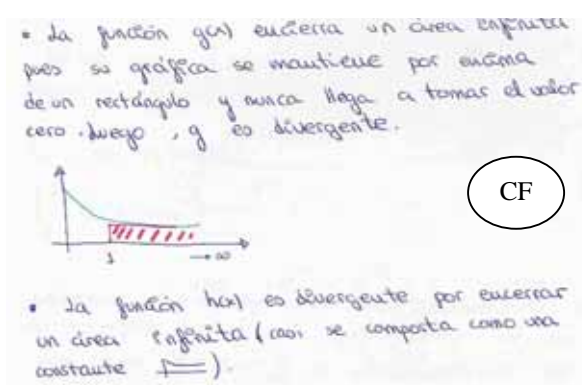 • La función g(x) encierra un área infinita
pues su gráfica se mantiene por encima
de un rectángulo y nunca llega a tomar el valor
cero. Luego, g es divergente.
CF
1 → ∞
• La función h(x) es divergente por encerrar
un área infinita (casi se comporta como una
constante ).